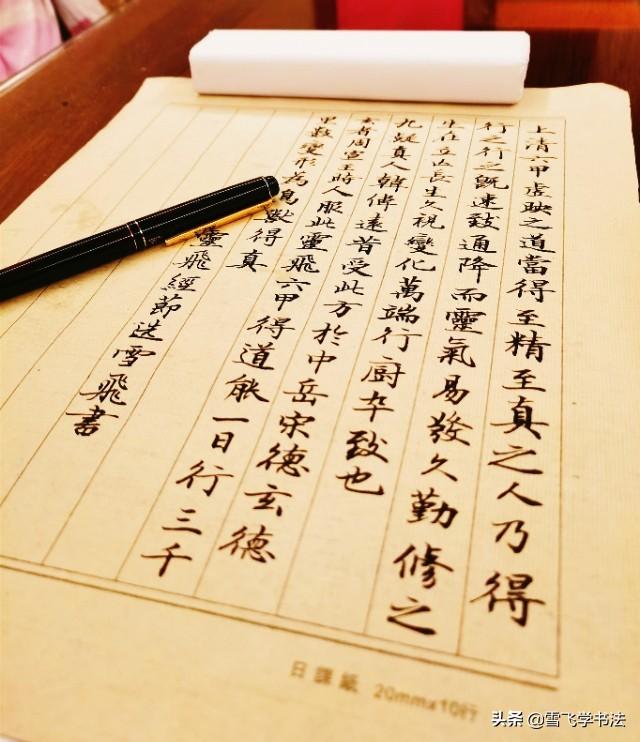 上清六甲虚映之道當得至精至真之人乃得
行之行之既速致通降而靈氣易發久勤修之
坐在立亡長生久視變化萬端行廚卒致也
九疑真人韓偉遠昔受此方於中岳宋德玄德
玄者周宣王時人服此靈飛六甲得道能一日行三千
里數變形為鳥獸得真
靈飛經節选雪飛書
日課紙 20mmx10行
头条 @雪飞学书法